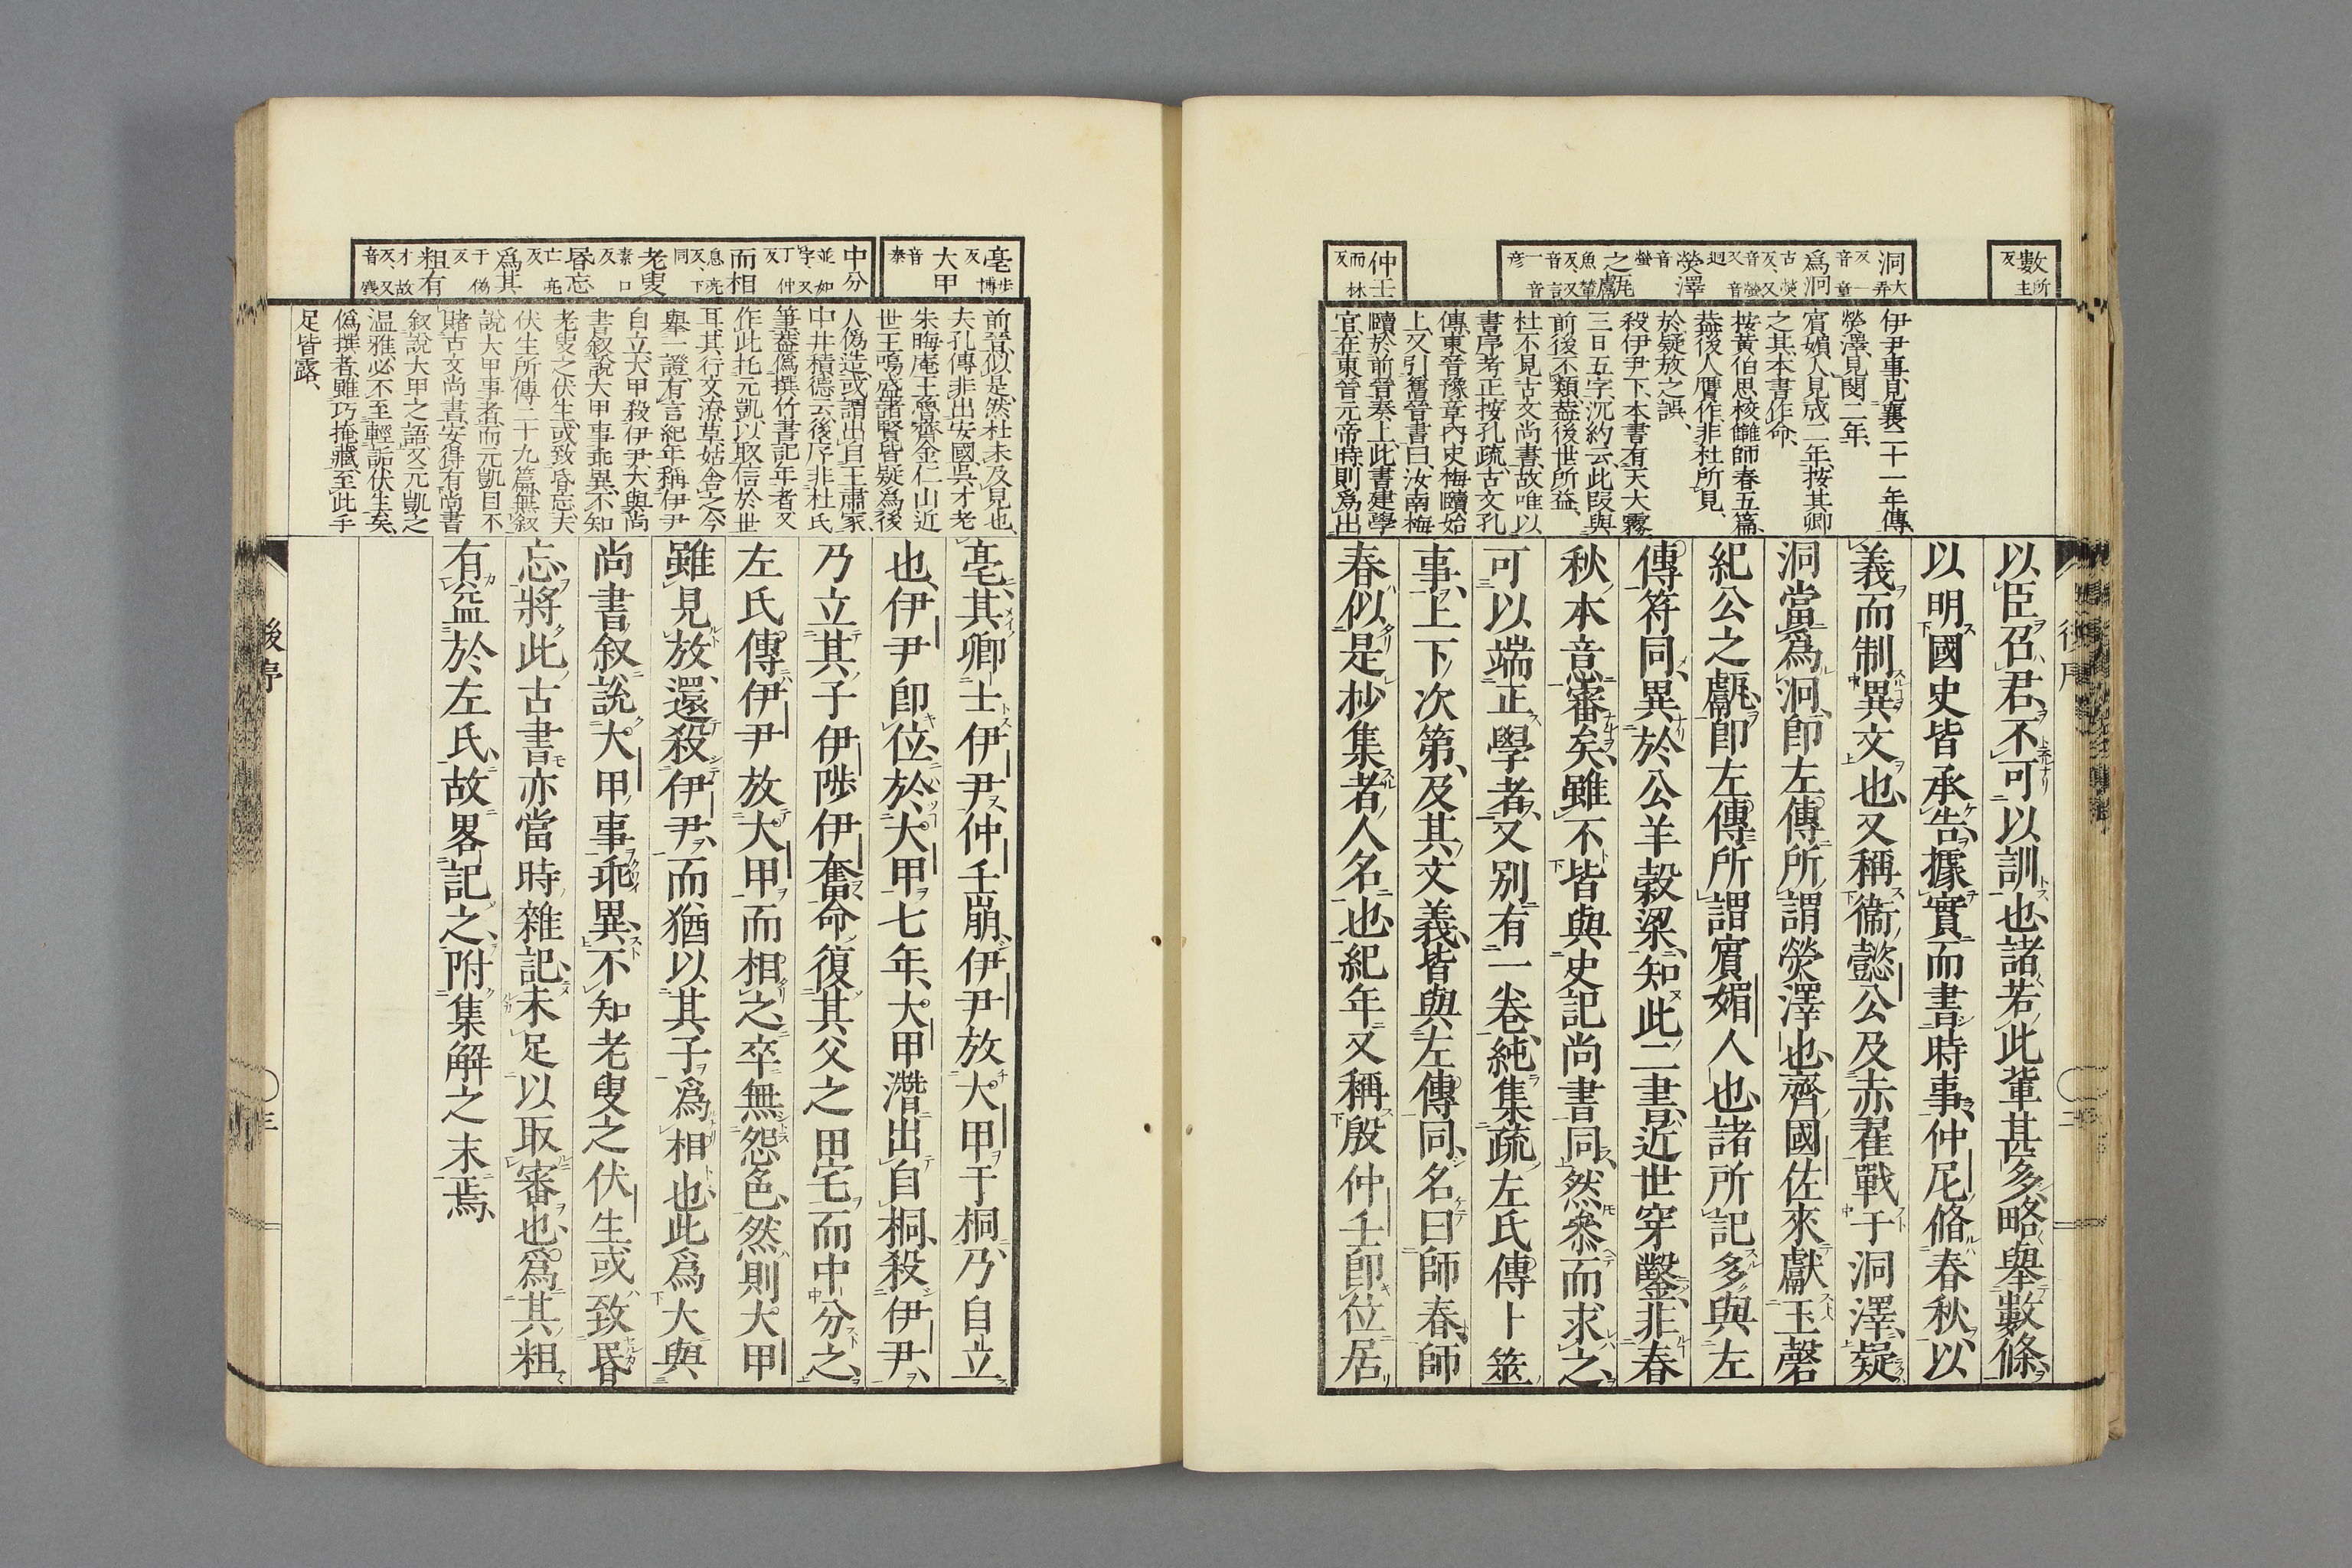 數所主反
洞大弄反一音童
爲泂古熒反又音螢又音迥
熒澤音螢
之甗魚輦反又音言一音彥
仲壬而林反
伊尹事見襄二十一年傳
熒澤見閔二年
賓媚人見成二年按其卿
之其本書作命
按黃伯思校讎師春五篇
葢後人贋作非杜所見
於疑放之誤
殺伊尹下本書有天大霧
三日五字沉約云此叚與
前後不類葢後世所益
杜不見古文尚書故唯以
書序考正按孔疏古文孔
傳東晉豫章內史梅賾始
上又引舊晉書曰汝南梅
賾於前晉奏上此書建學
官在東晉元帝時則爲出
以臣召君不可以訓也諸若此輩甚多略舉數條
以明國史皆承告據實而書時事仲尼脩春秋以
義而制異文也又稱衞懿公及赤翟戰于洞澤疑
洞當爲泂卽左傳所謂熒澤也齊國佐來獻玉磬
紀公之甗卽左傳所謂賓媚人也諸所記多與左
傳符同異於公羊穀梁知此二書近世穿鑿非春
秋本意審矣雖不皆與史記尚書同然叅而求之
可以端正學者又別有一卷純集疏左氏傳卜筮
事上下次第及其文義皆與左傳同名曰師春師
春似是抄集者人名也紀年又稱殷仲壬卽位居
後序
二
亳步博反
大甲音泰
中分並如字又丁仲反
而相息亮反下同
老叟素口反
昬忘亡亮反
爲其于僞反
粗有才故反又音麁
前晉似是然杜未及見也
夫孔傳非出安國吳才老
朱晦庵王魯齋金仁山近
世王鳴盛諸賢皆疑爲後
人僞造或謂出自王肅家
中井積德云後序非杜氏
筆葢僞撰竹書記年者又
作此托元凱以取信於世
耳其行文潦草姑舍之今
舉一證有言紀年稱伊尹
自立大甲殺伊尹大與尚
書叙說大甲事乖異不知
老叟之伏生或致昬忘夫
伏生所傳二十九篇無叙
說大甲事者而元凱目不
賭古文尚書安得有尚書
叙說大甲之語又元凱之
温雅必不至輕詬伏生矣
僞撰者雖巧掩藏至此手
足皆露
亳其卿士伊尹仲壬崩伊尹放大甲于桐乃自立
也伊尹卽位於大甲七年大甲潛出自桐殺伊尹
乃立其子伊陟伊奮命復其父之田宅而中分之
左氏傳伊尹放大甲而相之卒無怨色然則大甲
雖見放還殺伊尹而猶以其子爲相也此爲大與
尚書叙說大甲事乖異不知老叟之伏生或致昬
忘將此古書亦當時雜記未足以取審也爲其粗
有益於左氏故畧記之附集解之末焉
後序
三